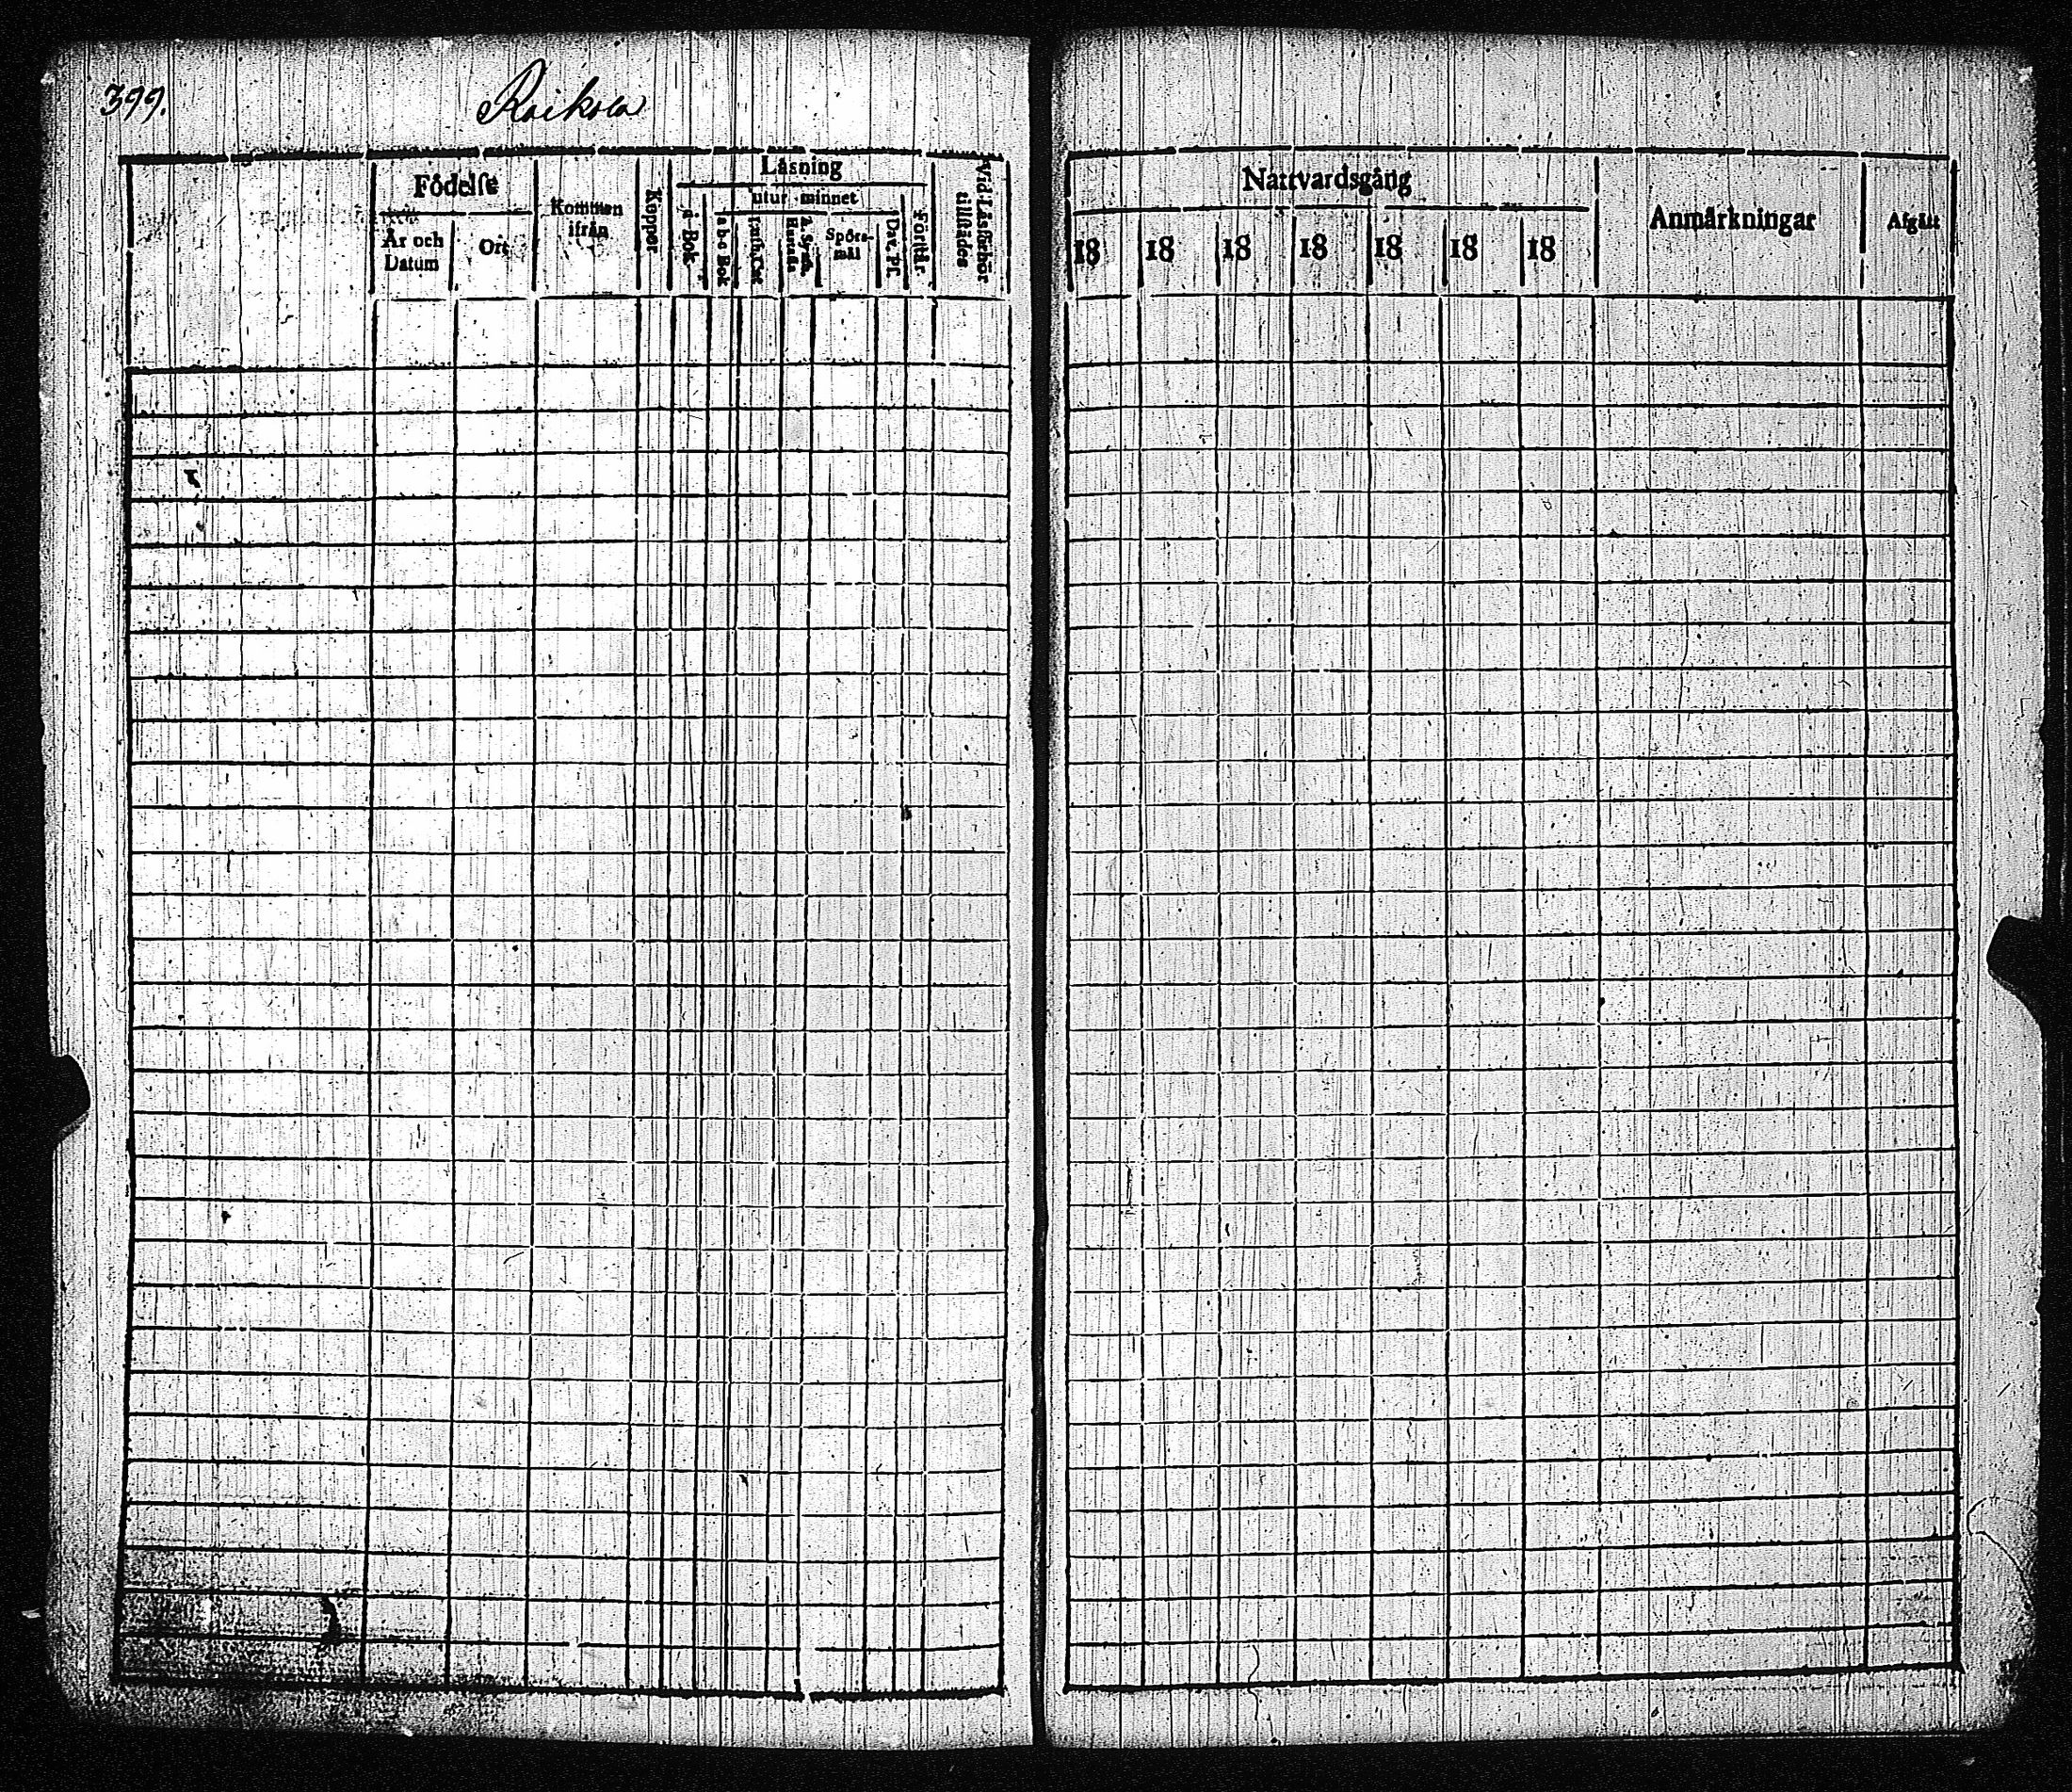 399.
Raikola
Födelse
År och Datum
Ort
Kommen ifrån
Koppor
Läsning
i Bok
utur minnet
a b c Bok
Luth. Cat.
Spörs-mål
Dav. Ps.
Förstår
Vid Läsförhör tillstädes
Nattvardsgång
18 18 18 18 18 18 18
Anmärkningar
Afgått